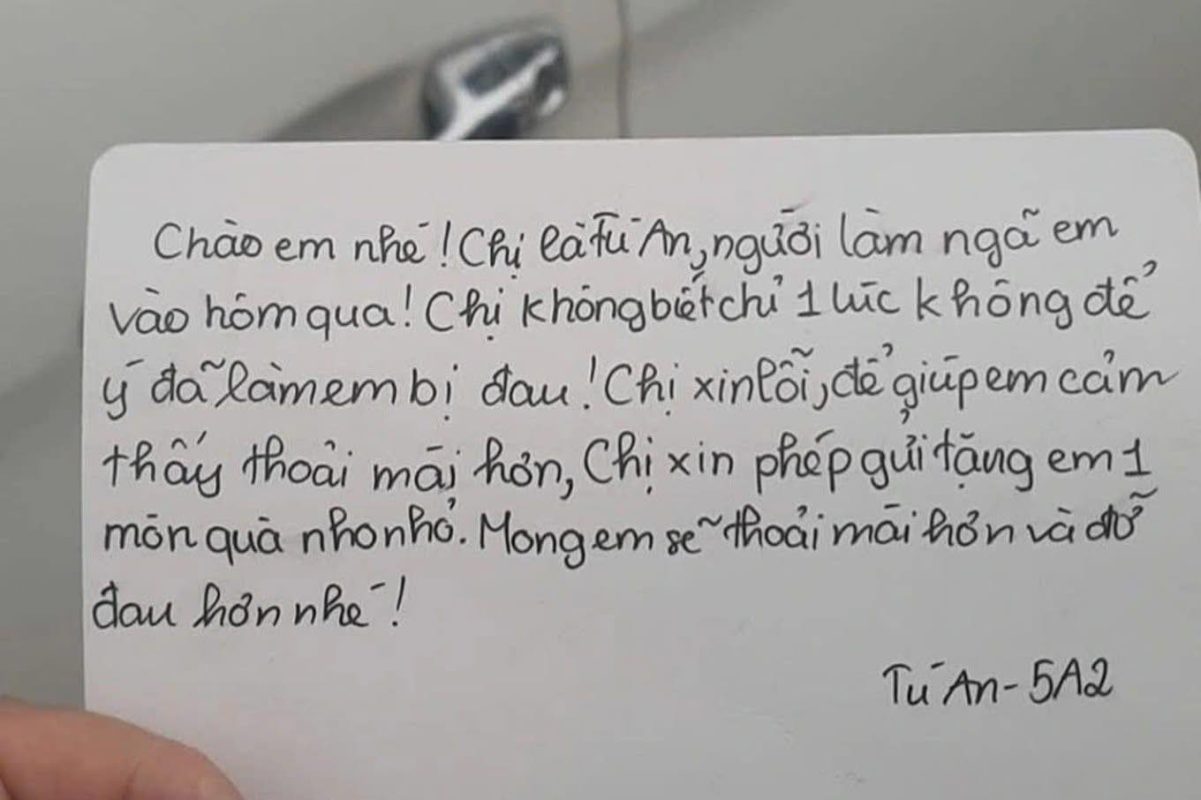 Chào em nhé! Chị là Tú An, người làm ngã em
vào hôm qua! Chị không biết chỉ 1 lúc không để
ý đã làm em bị đau! Chị xin lỗi, để giúp em cảm
thấy thoải mái hơn, Chị xin phép gửi tặng em 1
món quà nho nhỏ. Mong em sẽ thoải mái hơn và đỡ
đau hơn nhé!
Tú An - 5A2